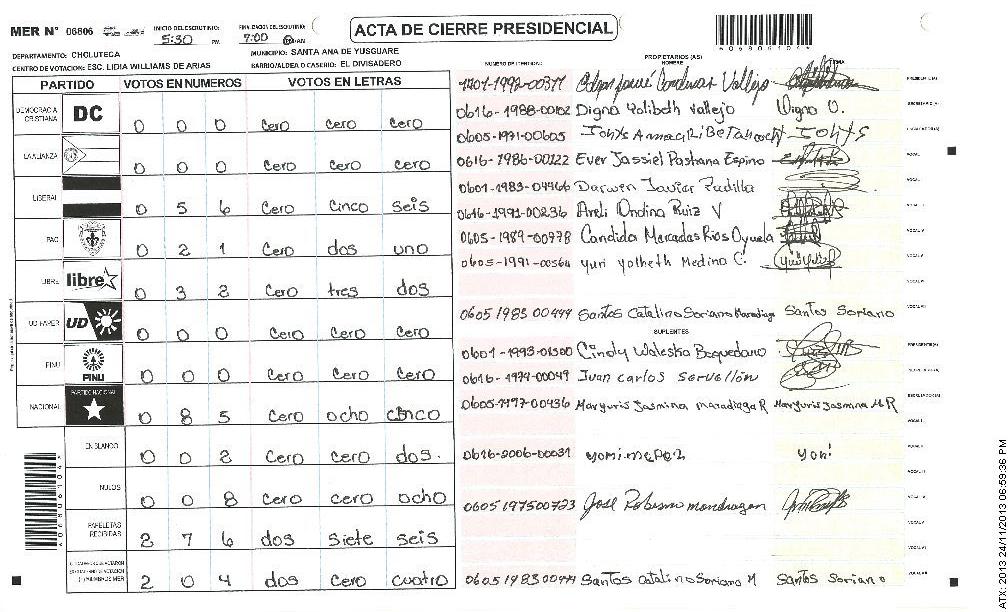 MER N° 06806 INICIO DEL ESCRUTINIO: 5:30 PM FINALIZACION DEL ESCRUTINIO: 7:00 ACTA DE CIERRE PRESIDENCIAL
DEPARTAMENTO: CHOLUTECA MUNICIPIO: SANTA ANA DE YUSGUARE
CENTRO DE VOTACION: ESC. LIDIA WILLIAMS DE ARIAS BARRIO/ALDEA O CASERIO: EL DIVISADERO
NUMERO DE IDENTIDAD PROPIETARIOS (AS) NOMBRE FIRMA
PARTIDO VOTOS EN NUMEROS VOTOS EN LETRAS
DEMOCRACIA CRISTIANA DC 0 0 0 Cero Cero Cero
LA ALIANZA 0 0 0 Cero Cero Cero
LIBERAL 0 5 6 Cero Cinco Seis
PAC 0 2 1 Cero dos uno
LIBRE libre 0 3 2 Cero tres dos
UD-FAPER UD 0 0 0 Cero Cero Cero
PINU PINU 0 0 0 Cero Cero Cero
NACIONAL PARTIDO NACIONAL 0 8 5 Cero ocho cinco
EN BLANCO 0 0 2 Cero Cero dos.
NULOS 0 0 8 Cero cero ocho
PAPELETAS RECIBIDAS 2 7 6 dos Siete seis
2 0 4 dos Cero cuatro
0616-1988-00102 Digna Yolibeth Vallejo Digna V.
0605-1971-00605
0616-1986-00122 Ever Jassiel Pastrana Espino
0601-1983-04466 Darwin Javier Padilla
0616-1991-00236 Areli Ondina Ruiz V
0605-1989-00978 Candida Mercedes Rios Oyuela
0605-1991-00564 Yuri Yolibeth Medina C.
0605 1983 00444 Santos Catalino Soriano Maradiaga Santos Soriano
SUPLENTES
0601-1993-01500 Cindy Waleska Boquedano
0616-1974-00049 Juan Carlos Servellón
0605-1997-00436 Maryuris Jasmina maradiaga R Maryuris Jasmina M R
0616-2006-00031 Yoni
0605 197500723 José Mondragon
0605 1983 00444 Santos Catalino Soriano M Santos Soriano
ATX 2013 24/11/2013 06:59:36 PM